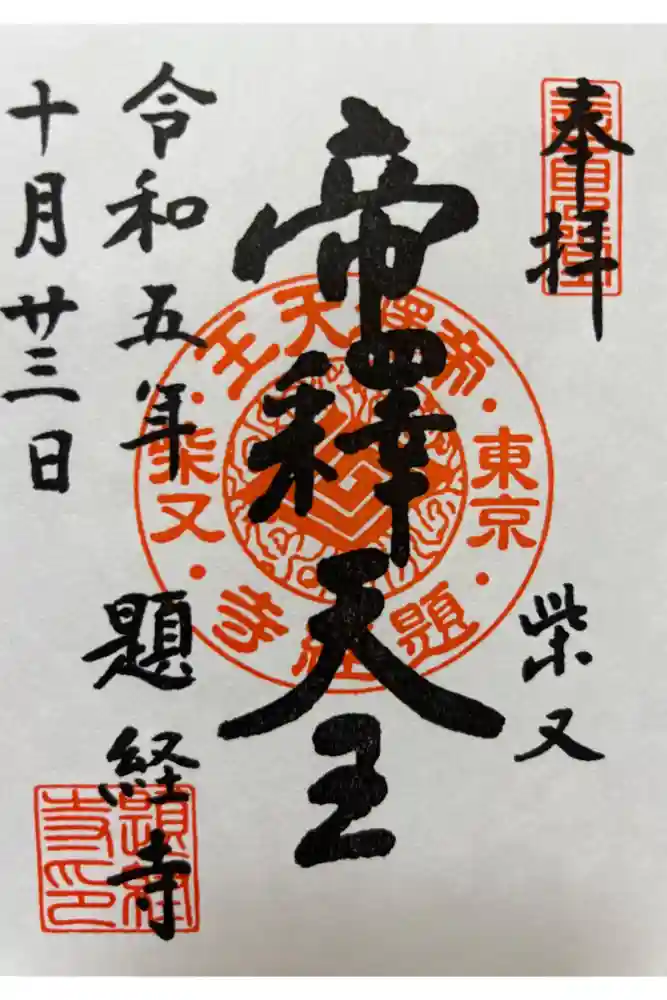 奉拝
柴又
帝釋天王
令和五年
十月廿三日
題経寺
帝釋天王
東京
柴又
題経寺
題経寺印